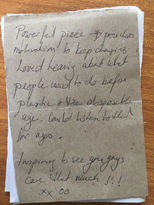 Powerful piece → provides
motivation to keep changing.
Loved hearing about what
people used to do before
plastic & the disposable
age. Could listen to that
for ages.
Inspiring to see you guys
care that much !!!
xx oo